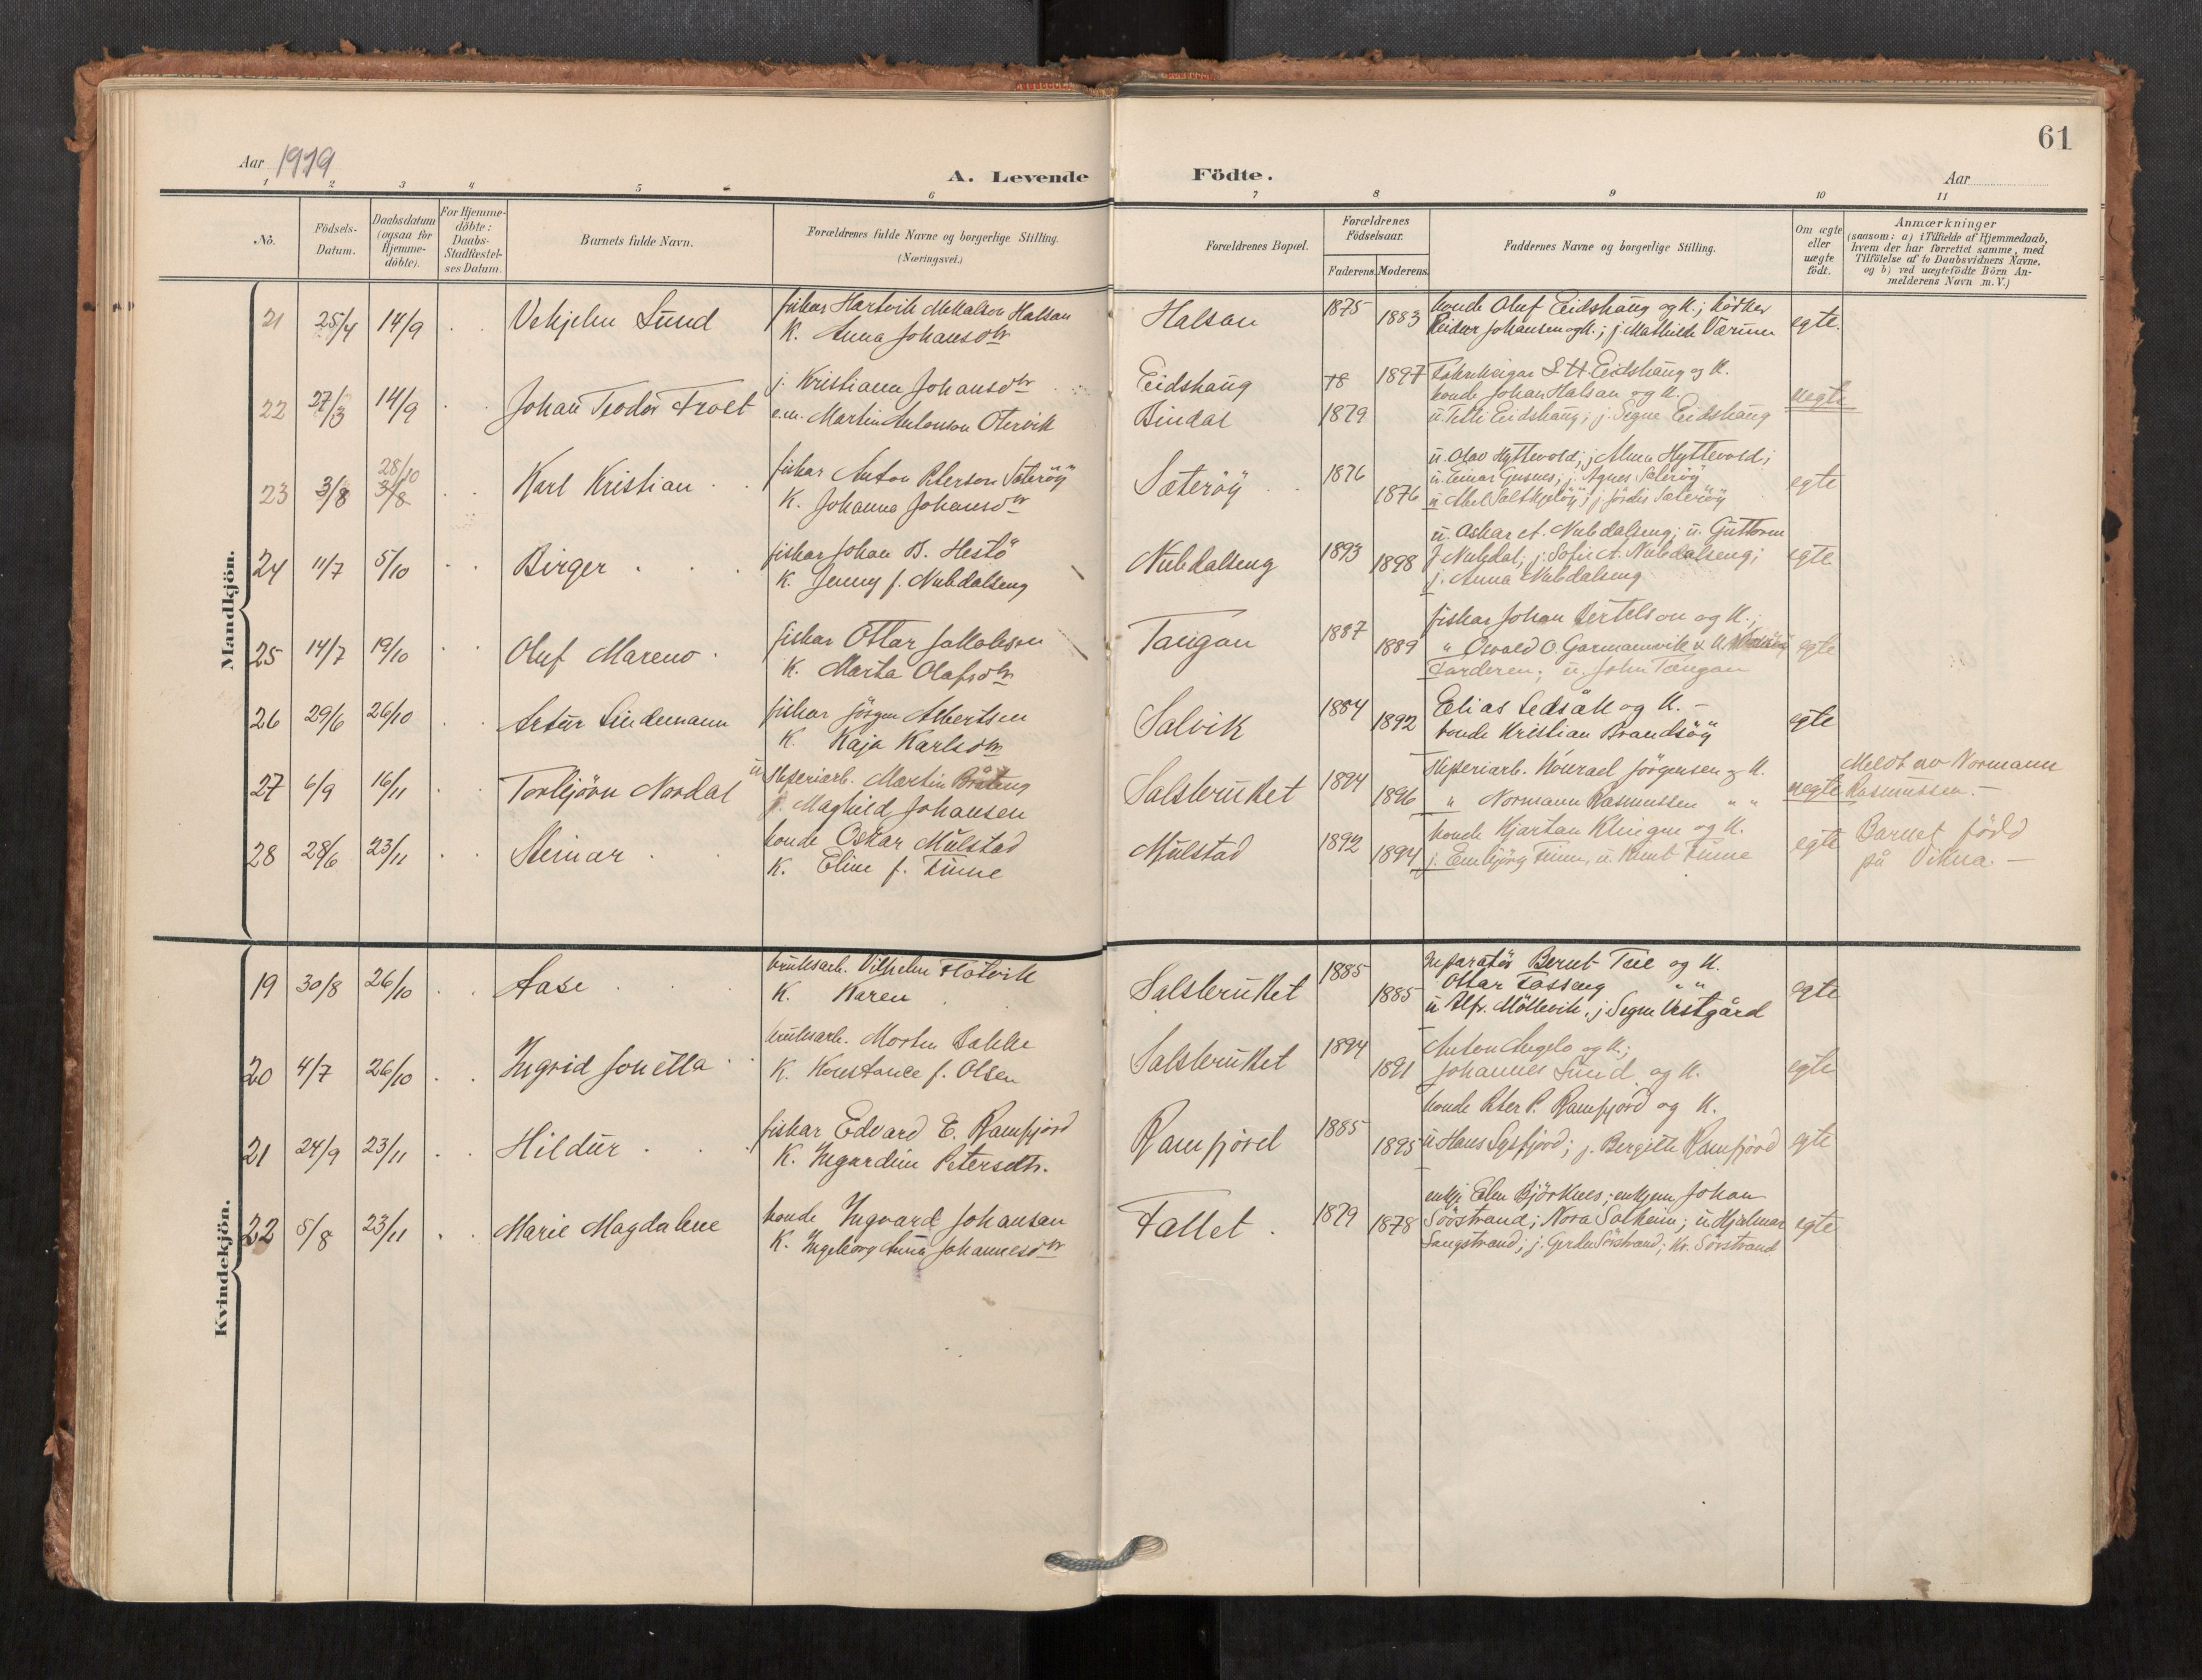 61
Aar 1919
A. Levende Födte.
Aar
1 2 3 4 5 6 7 8 9 10 11
No.
Födsels-Datum.
Daabsdatum (ogsaa for Hjemme-döbte).
For Hjemme-döbte: Daabs-Stadfæstel-ses Datum.
Barnets fulde Navn.
Forældrenes fulde Navne og borgerlige Stilling. (Næringsvei.)
Forældrenes Bopæl.
Forældrenes Födselsaar.
Faderens. Moderens.
Faddernes Navne og borgerlige Stilling.
Om ægte eller uægte födt.
Anmærkninger
(saasom: a) i Tilfælde af Hjemmedaab, hvem der har forrettet samme, med Tilföielse af to Daabsvidners Navne, og b) ved uægtefödte Börn An-melderens Navn m. V.)
Mandkjön.
21 25/4 14/9 Lund Halsan 1875 1883 bonde Oluf Eidshaug og K.; egte.
K. Anna Johansdtr Johansen og K.; j. Mathilde Værum
22 27/3 14/9 Johan Teodor j. Kristianna Johansdtr Eidshaug 18 1897 Eidshaug og K.
e.m. Martin Antonson Otervik Bindal 1879 bonde Johan Halsan og K. uegte
Eidshaug; j. Signe Eidshaug
23 3/8 28/10 3/8 Karl Kristian fiskar Anton Peterson Sæterøy Sæterøy 1876 1876 u. Olav Hyttevold; j. Hyttevold; egte
K. Johanna Johansdtr j. Agnes Sæterøy
24 11/7 5/10 Birger fiskar Johan B. Hestö Nubdalseng 1893 1898 u. Oskar A. Nubdalseng; u. Guttorm egte
K. Jenny f. Nubdalseng J. Nubdal; j. Sofie A. Nubdalseng;
j. Anna Nubdalseng
25 14/7 19/10 Oluf Mareno fiskar Ottar Jakobsen Tangan 1887 1889 fiskar Johan Bertelson og K.; egte
K. Marta Olafsdtr " Osvald O. Garmannvik
u. John Tangan
26 29/6 26/10 Artur Lindemann fiskar Jörgen Albertsen Salvik 1884 1892 Elias Ledsåk og K. – egte
K. Kaja Karlsdtr bonde Kristian Brandsöy
27 6/9 16/11 Torbjörn Nordal u. Martin Bråteng Salsbruket 1894 1896 Konrad Jörgensen og K. uegte Meldt av Normann
j. Maghild Johansen " Normann Rasmussen " " Rasmussen. –
28 28/6 23/11 Steinar bonde Oskar Mulstad Mulstad 1892 1894 bonde Kjartan Klingen og K. egte Barnet född
K. Eline f. Finne Finne, u. Knut Finne på Vikna –
Kvindekjön.
19 30/8 26/10 Aase bruksarb. Vilhelm Flotvik Salsbruket 1885 1885 reparatör Bernt Teie og K. egte
K. Karen Ottar Fosseng " "
u. Alfr. Möllevik; j. Signe Vestgård
20 4/7 26/10 Ingrid Jonetta bruksarb. Morten Bakke Salsbruket 1894 1891 Anton Angelo og K.; egte
K. Konstance f. Olsen Johannes Lund og K.
21 24/9 23/11 Hildur fiskar Edvard E. Ramfjord Ramfjord 1885 1895 bonde Peter P. Ramfjord og K. egte
K. Ingardine Petersdtr. u. Hans j. Bergitte Ramfjord
22 5/8 23/11 Marie Magdalene bonde Ingvard Johansen Fallet 1879 1878 Björknes; Johan egte
K. Ingeborg Anna Johannesdtr Söstrand; Nora Solheim; u. Hjalmar
Langstrand; j. Gerda Sörstrand; Kr. Sörstrand